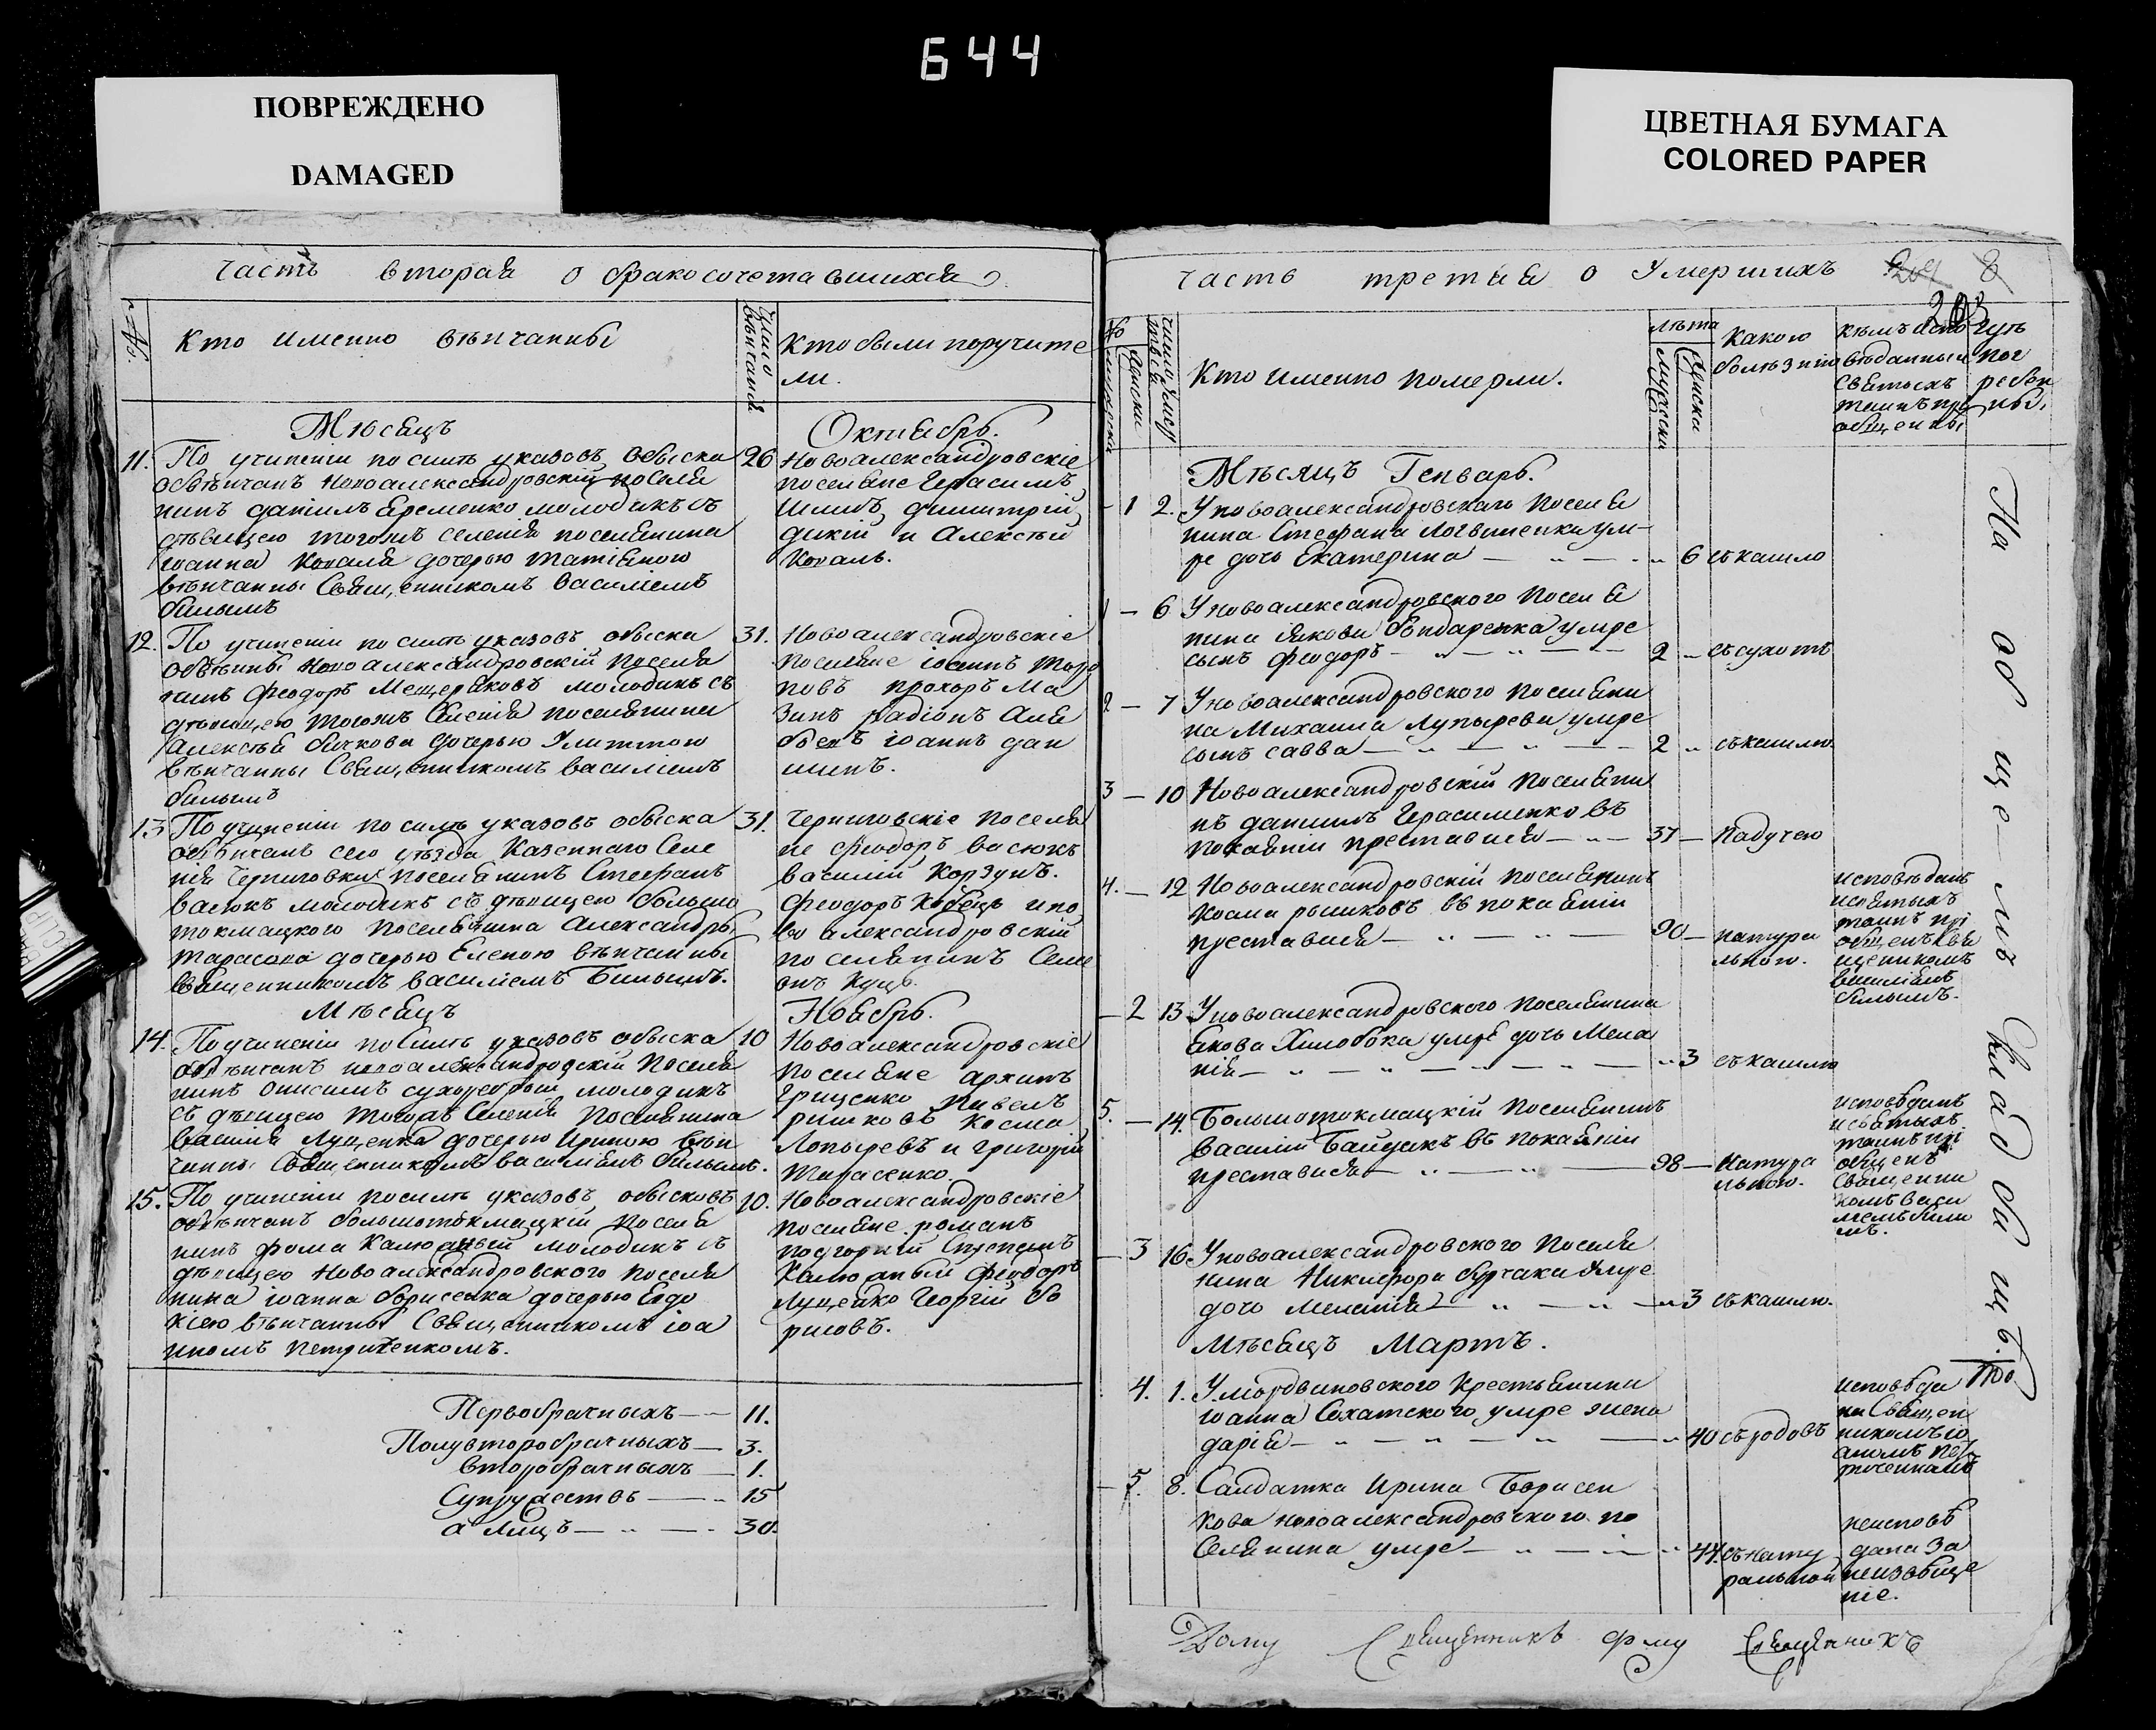 644
ПОВРЕЖДЕНО
DAMAGED
ЦВЕТНАЯ БУМАГА
COLORED PAPER
Часть вторая о бракосочетавшихся
№
Кто именно вѣнчанны
Число вѣнчанія
Кто были поручите
ли.
Мѣсяцъ Октябрь.
11. По учиненіи по силѣ указовъ обыска
обвѣнчанъ Новоалександровскій поселя
нинъ Даніилъ Еременко молодикъ съ
дѣвицею тогожъ селенія поселянина
Іоанна Коваля дочерью
вѣнчанны Священникомъ Василіемъ
Билымъ
26 Новоалександровскіе
поселяне Герасимъ
Димитрій
дикій и Алексѣй
Коваль.
12. По учиненіи по силѣ указовъ обыска
Новоалександровскій поселя
нинъ Феодоръ Мещеряковъ молодикъ съ
дѣвицею тогожъ Селенія поселянина
Алексѣя Бичкова дочерью
вѣнчанны Священникомъ Василіемъ
Билымъ
31. Новоалександровскіе
поселяне Іоаннъ
повъ Прохоръ Ма
зинъ Радіонъ
Іоаннъ Дан
13 По учиненіи по силѣ указовъ обыска
обвѣнчанъ сего уѣзда Казеннаго Селе
нія Черниговки поселянинъ Стефанъ
Васюкъ молодикъ съ дѣвицею Большо
токмацкого поселянина Александра
Тарасова дочерью Еленою вѣнчанны
Священникомъ Василіемъ Билымъ.
31. Черниговскіе поселя
не Феодоръ Васюкъ
Василій Корзунъ.
Феодоръ Кобецъ и но
во александровскій
поселянинъ Семе
онъ Куцъ.
Мѣсяцъ Ноябрь.
14. По учиненіи по силѣ указовъ обыска
обвѣнчанъ новоалександровскій поселя
нинъ Онисимъ Сухоребрый молодикъ
съ дѣвицею тогожъ Селенія поселянина
Василія Луценка дочерью Ириною вѣн
чанны Священникомъ Василіемъ Билымъ.
10 Новоалександровскіе
поселяне Архипъ
Гриценко Павелъ
Косма
Лопыревъ и Григорій
Тарасенко.
15. По учиненіи по силѣ указовъ обысковъ
обвѣнчанъ большотокмацкій поселя
нинъ Фома Калюжный молодикъ съ
дѣвицею Новоалександровского поселя
нина Іоанна Борисенка дочерью Евдо
кіею вѣнчанны Священникомъ Іоа
нномъ Петриченкомъ.
10. Новоалександровскіе
поселяне Романъ
Калюжный Феодоръ
Луценко Георгій Бо
рисовъ.
Первобрачныхъ 11.
Полуторобрачныхъ 3.
второбрачныхъ 1.
Супружествъ 15
а Лицъ 30.
Часть третія о Умершихъ
203
№
мужески
женски
Число умер
Кто именно померли.
лѣта
мужески
женски
Какою
болѣзнію
кѣмъ испо
вѣданны и
Святыхъ
таинъ прі
общенны
гдѣ
пог
ребен
ны.
Мѣсяцъ Генварь.
1 2. У новоалександровскаго поселя
нина Стефана Логвиненка ум-
ре дочь Екатерина 6 съ кашлю
1 6 У новоалександровского поселя
нина Якова Бондаренка умре
сынъ Феодоръ 2 съ сухотъ
2 7 У новоалександровского поселяни
на Михаила Лупырева умре
сынъ Савва 2 съ кашлю.
3 10 Новоалександровскій поселяни
нъ Даниилъ Герасименко въ
покаяніи преставися 37 Падучею
4. 12 Новоалександровскій поселянинъ
Косма Рышковъ въ покаяніи
преставися 90 натура
льною.
исповѣданъ
и святыхъ
таинъ прі
общенъ Свя
щеникомъ
Василіемъ
Билымъ.
2 13 У новоалександровского поселянина
Якова Хилобока умре дочь Мела
нія 3 съ кашлю
5. 14. Большотокмацкій поселянинъ
Василій Байдикъ въ покаяніи
преставися 98 Натура
льною.
исповѣданъ
и святыхъ
таинъ прі
общенъ
Священни
комъ Васи
ліемъ Билы
мъ.
3 16 У новоалександровского поселя
нина Никифора Бурчака умре
дочь Меланія 3 съ кашлю.
Мѣсяцъ Мартъ.
4. 1. У мордвиновского крестьянина
Іоанна Сохатского умре жена
Дарія 40 съ родовъ
исповѣда
на Священ
никомъ Іо
анномъ Пет
риченкомъ
5. 8. Салдатка Ирина Борисен
кова новоалександровского по
Селянина умре 44. съ нату
ральной
неисповѣ
дана за
неизвѣще
ніе.
На об ще мъ Кладби щѣ.
Тому Священникъ
Священникъ